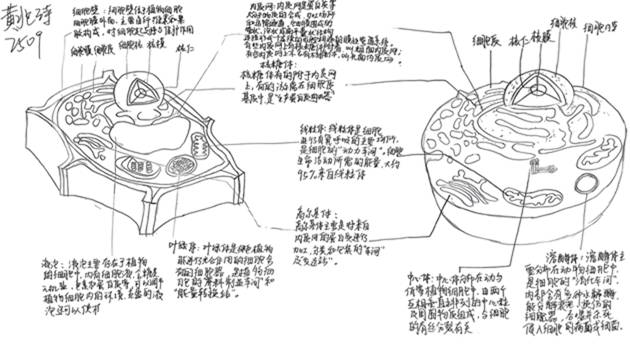 黄兆诗
2509
细胞壁：细胞壁位于植物细胞
细胞膜外面，主要由纤维素和果
胶构成，对细胞起支持与保护作用
细胞膜 细胞质 细胞核 核膜 核仁
核糖体：
核糖体有的附于内质网
上，有的游离在细胞质
基质中，是“生产蛋白质的机器”
细胞质 核仁 核膜 细胞核 细胞膜
线粒体：线粒体是细胞
进行有氧呼吸的主要场所，
是细胞的“动力车间”。细胞
生命活动所需的能量，大约
95%来自线粒体
高尔基体：
高尔基体主要是对来自
内质网的蛋白质进行
加工、分类和包装的“车间”
及“发送站”。
液泡：液泡主要存在于植物
的细胞中，内有细胞液，含糖类
无机盐、色素和蛋白质等，可以调节
植物细胞内的环境，充盈的液
泡还可以使植
叶绿体：叶绿体是绿色植物
能进行光合作用的细胞含
有的细胞器，是植物细
胞的“养料制造车间”和
“能量转换站”。
中心体：中心体分布在动物与
低等植物细胞中，由两个
互相垂直排列的中心粒
及周围物质组成，与细胞
的有丝分裂有关
溶酶体：溶酶体主
要分布在动物细胞中，
是细胞的“消化车间”，
内部含有多种水解酶，
能分解衰老、损伤的
细胞器，吞噬并杀死
侵入细胞的病毒或细菌。